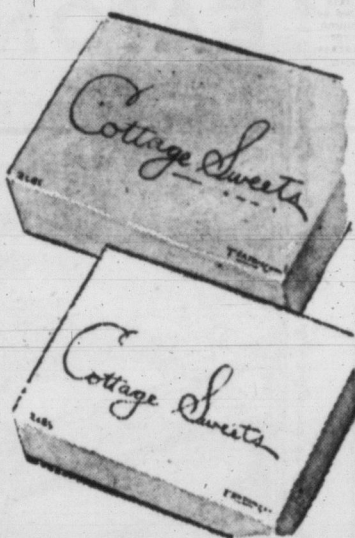 Cottage Sweets
Cottage Sweets